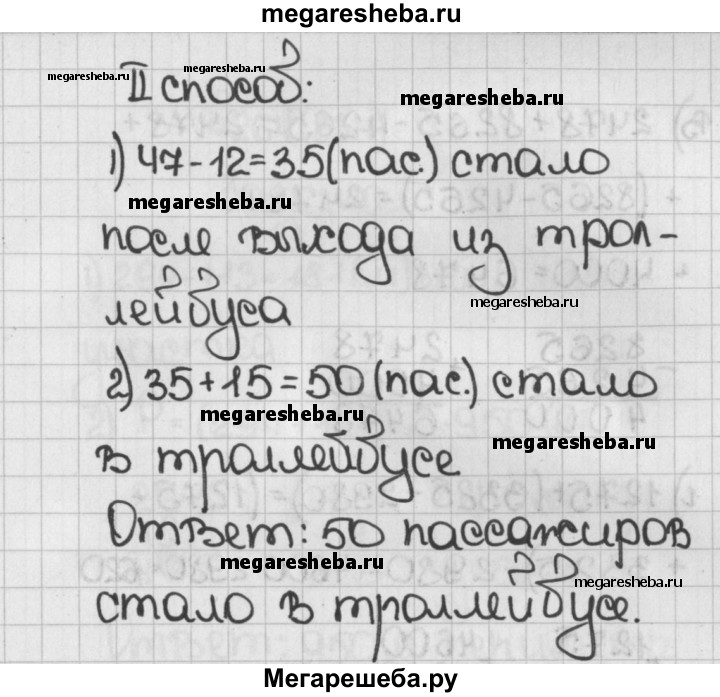 megaresheba.ru
megaresheba.ru
megaresheba.ru
II способ:
megaresheba.ru
1) 47-12=35(пас.) стало
megaresheba.ru
после выхода из трол-
megaresheba.ru
лейбуса
2) 35+15=50(пас.) стало
megaresheba.ru
megaresheba.ru
в траллейбусе
Ответ: 50 пассажиров
megaresheba.ru
megaresheba.ru
стало в троллейбусе.
Мегарешеба.ру